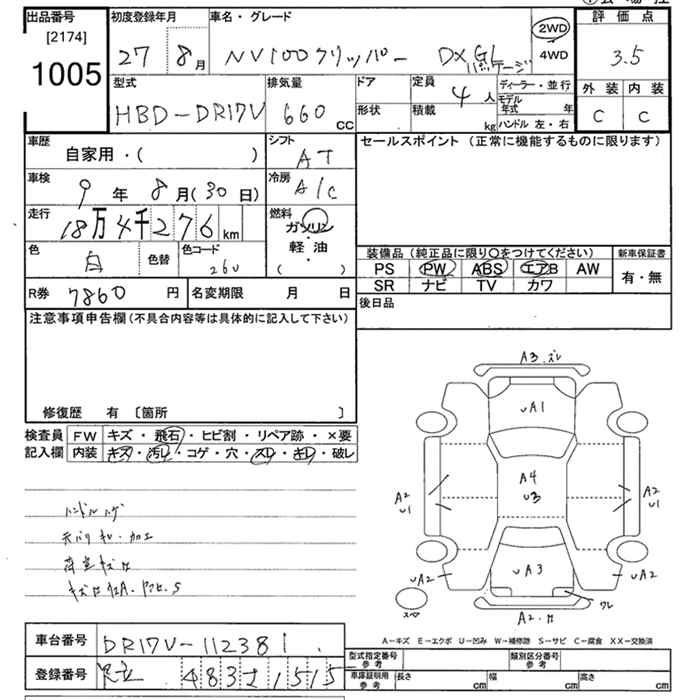 出品番号
[2174]
1005
初度登録年月
27 8月
車名・グレード
NV100クリッパー DX GLパッケージ
2WD
4WD
評価点
3.5
外装 内装
C C
型式
HBD-DR17V
排気量
660 CC
ドア
形状
定員
4人
積載
kg
ディーラー・並行
モデル年式 年
ハンドル 左・右
車歴
自家用・( )
シフト
AT
セールスポイント (正常に機能するものに限ります)
車検
9年 8月(30日)
冷房
A/C
走行
18万4千276km
燃料
ガソリン
軽・油
( )
色
白
色替
色コード
26U
装備品 (純正品に限り○をつけてください)
新車保証書
PS PW ABS エアB AW
SR ナビ TV カワ
有・無
R券 7860円
名変期限 月 日
後日品
注意事項申告欄(不具合内容等は具体的に記入して下さい)
修復歴 有 〔箇所 〕
検査員記入欄
FW キズ・飛石・ヒビ割・リペア跡・×要
内装 キズ・汚レ・コゲ・穴・スレ・キレ・破レ
ハンドルハゲ
荷室キズ凹
A3.ズレ
UA1
A4
U3
A2
U1
A2
U1
UA3
UA2
UA2
ワレ
スペア
A2.
A-キズ E-エクボ U-凹み W-補修跡 S-サビ C-腐食 XX-交換済
車台番号 DR17V-112381
登録番号 足立 483 さ 1515
型式指定番号
参考
類別区分番号
参考
車庫証明用
参考
長さ cm
幅 cm
高さ cm